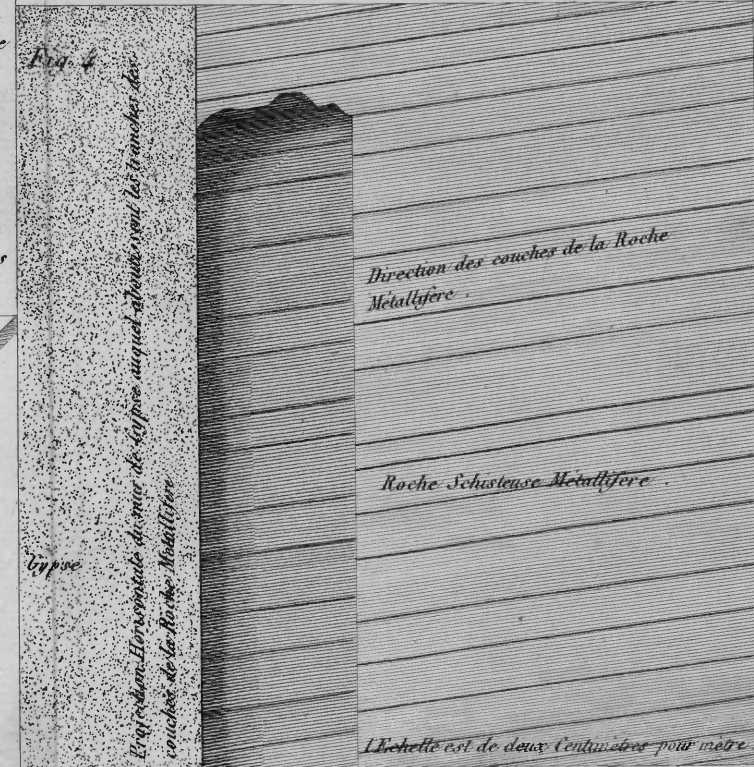 Fig. 4
Projection Horisontale du mur de Gypse auquel aboutissent les tranches des
couches de la Roche Métallifère
Gypse
Direction des couches de la Roche
Métallifère .
Roche Schisteuse Métallifère .
l'Echelle est de deux Centimètres pour mètre